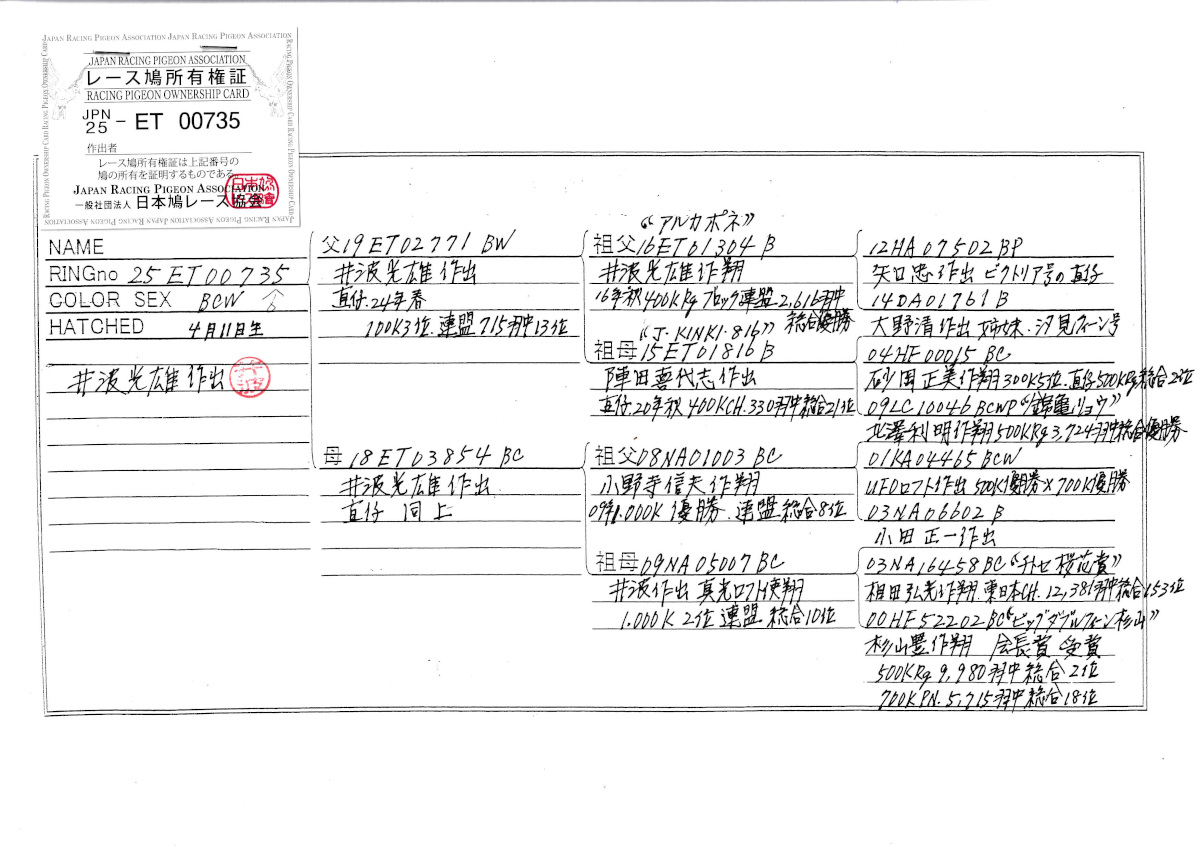 JAPAN RACING PIGEON ASSOCIATION JAPAN RACING PIGEON ASSOCIATION
JAPAN RACING PIGEON ASSOCIATION
レース鳩所有権証
RACING PIGEON OWNERSHIP CARD
JPN
25 - ET 00735
作出者
レース鳩所有権証は上記番号の
鳩の所有を証明するものである。
JAPAN RACING PIGEON ASSOCIATION
一般社団法人 日本鳩レース協会
NAME
RINGno 25ET00735
COLOR SEX BCW
HATCHED 4月11日生
井波光雄作出
父19ET02771 BW
井波光雄作出
直仔.24年春
100K3位.連盟715羽中13位
母18ET03854 BC
井波光雄作出
直仔 同上
"アルカポネ"
祖父16ET01304 B
井波光雄作翔
16年秋400KRgブロック連盟2,616羽中
総合優勝
"J・KINKI・816"
祖母15ET01816 B
陣田喜代志作出
直仔.20年秋400KCH.330羽中総合21位
祖父08NA01003 BC
小野寺信夫作翔
09年1.000K優勝.連盟総合8位
祖母09NA05007 BC
井波作出 真光ロフト使翔
1.000K 2位 連盟 総合10位
12HA07502 BP
矢口忠作出 ビクトリア号の直仔
14DA01761 B
大野清作出 姉妹.汐見クィーン号
04HF00015 BC
砂田正美作翔300K5位.直仔500KRg総合2位
09LC10046 BCWP "錦亀リョウ"
北澤利明作翔500KRg3,724羽中総合優勝
01KA04465 BCW
UFOロフト作出 500K優勝×700K優勝
03NA06602 B
小田正一作出
03NA16458 BC "チトセ桜花賞"
相田弘光作翔.東日本CH.12,381羽中総合153位
00HF52202 BC "ビッグダブルクィーン杉山"
杉山豊作翔 会長賞 受賞
500KRg 9,980羽中総合2位
700KPN.5,715羽中総合18位